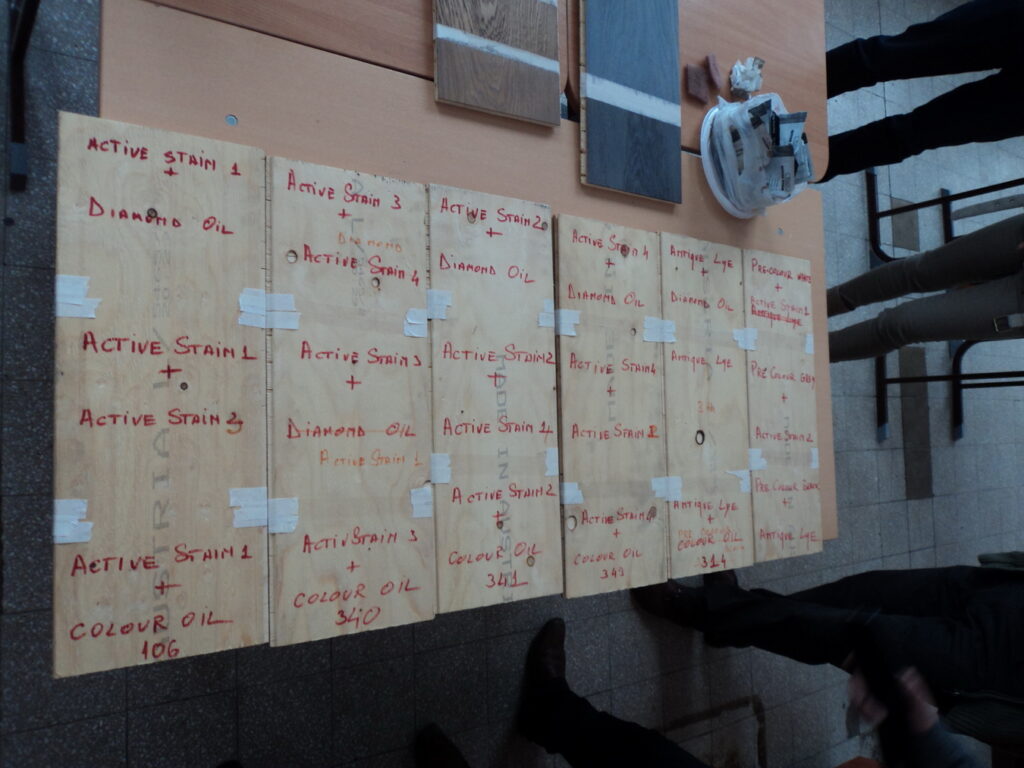 ACTIVE STAIN 1
+
DIAMOND OIL
ACTIVE STAIN 1
+
ACTIVE STAIN
ACTIVE STAIN 1
+
COLOUR OIL
106
ACTIVE STAIN 3
+
DIAMOND
ACTIVE STAIN 4
ACTIVE STAIN 3
+
DIAMOND OIL
ACTIVE STAIN 1
ACTIV STAIN 3
+
COLOUR OIL
340
ACTIVE STAIN 2
+
DIAMOND OIL
ACTIVE STAIN 2
+
ACTIVE STAIN
ACTIVE STAIN 2
+
COLOUR OIL
341
ACTIVE STAIN 4
+
DIAMOND OIL
ACTIVE STAIN 4
+
ACTIVE STAIN
ACTIVE STAIN 4
+
COLOUR OIL
ANTIQUE LYE
+
DIAMOND OIL
ANTIQUE LYE
ANTIQUE LYE
+
COLOUR OIL
314
PRE-COLOUR WHITE
+
ACTIVE STAIN 1
ANTIQUE LYE
PRE COLOUR GREY
+
ACTIVE STAIN 2
PRE COLOUR BLACK
+
ANTIQUE LYE